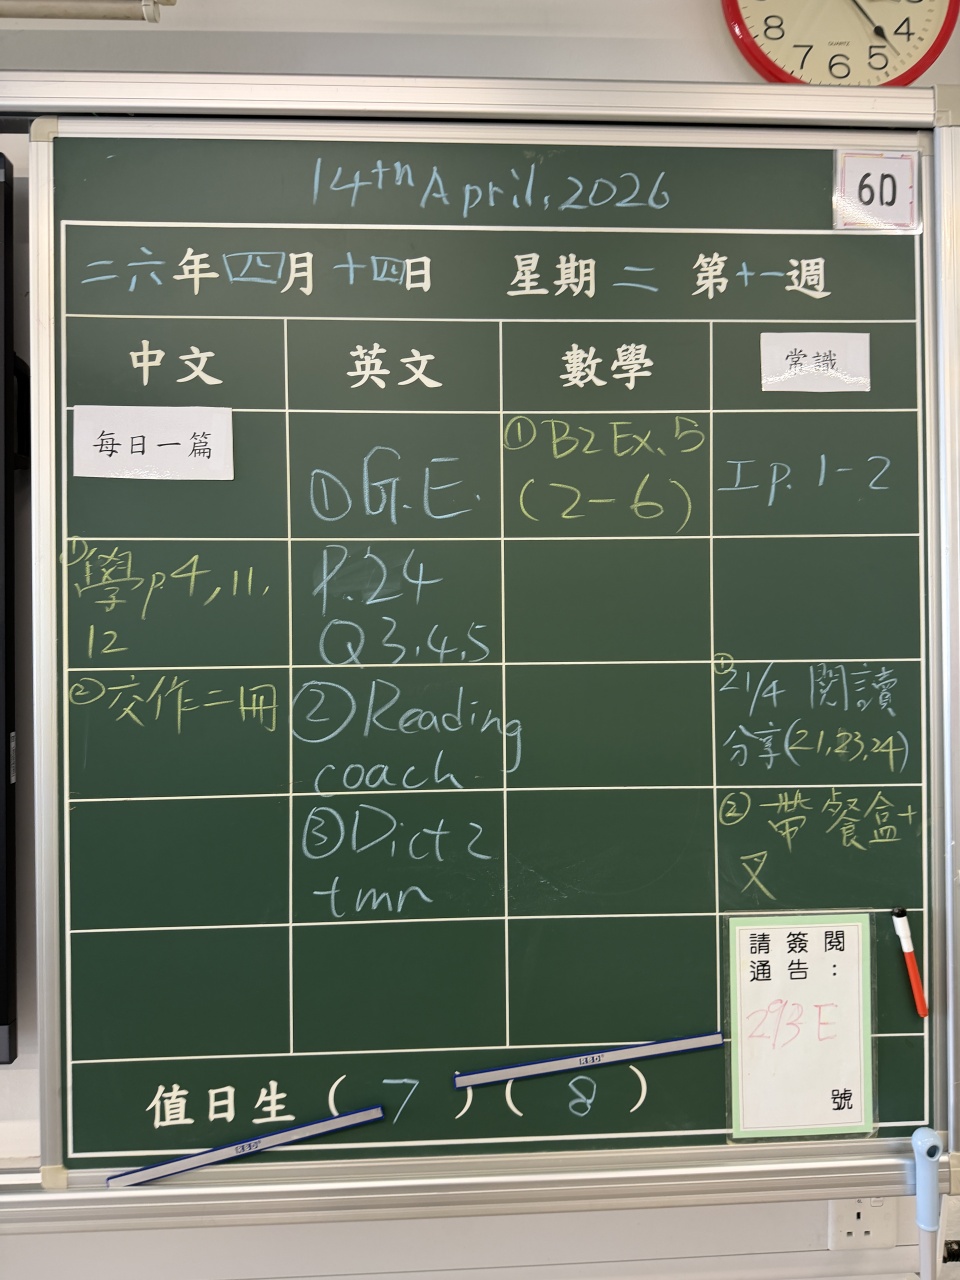 8
7 6 5 4
QUARTZ
14th April, 2026
6D
二六年四月十四日 星期二 第十一週
中文 英文 數學 常識
每日一篇
①學p.4,11,
12
②交作二冊
①G.E.
P.24
Q3.4.5
②Reading
coach
③Dict 2
tmr
①B2 Ex.5
(2-6)
工p.1-2
①21/4 閱讀
分享(21,23,24)
②帶餐盒+
叉
請簽閱
通告：
293E
號
值日生(7)(8)